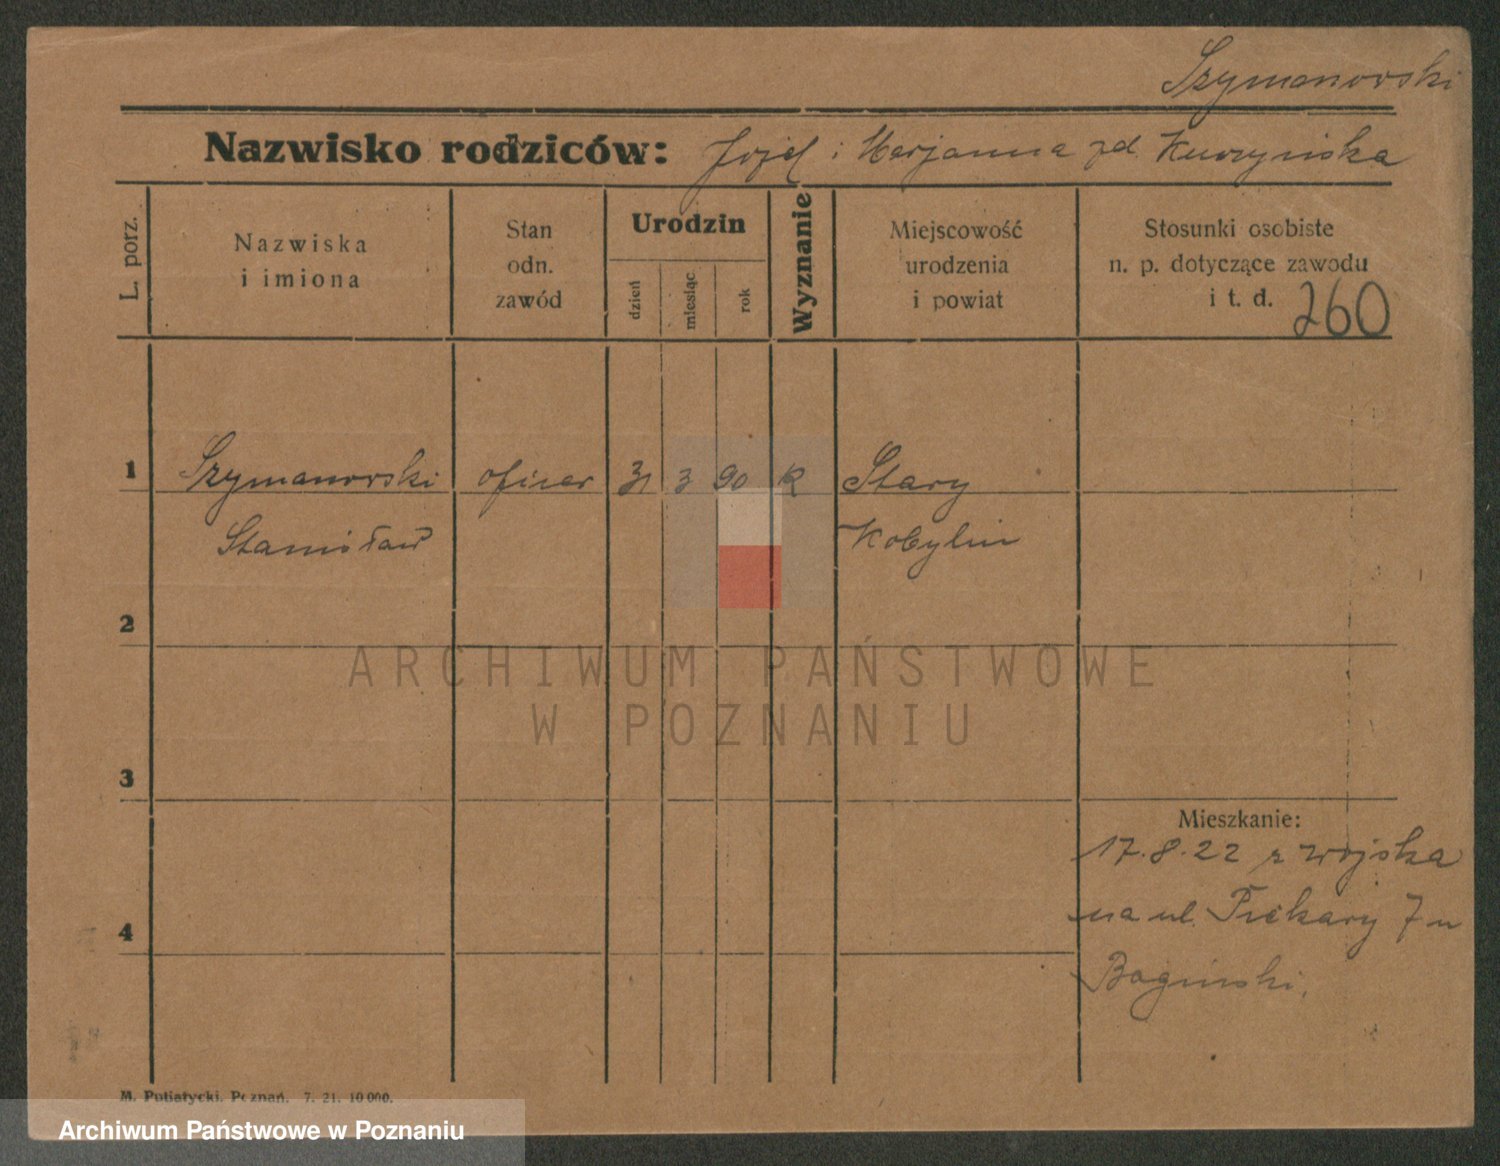 Szymanowski
Nazwisko rodziców: Józef i Marjanna zd. Kuczyńska
L. porz.
Nazwiska
i imiona
Stan
odn.
zawód
Urodzin
dzień
miesiąc
rok
Wyznanie
Miejscowość
urodzenia
i powiat
Stosunki osobiste
n. p. dotyczące zawodu
i t. d. 260
1 Szymanowski oficer 31 3 90 K Stary
Stanisław Kobylin
2
3
4
ARCHIWUM PAŃSTWOWE
W POZNANIU
Mieszkanie:
17.8.22 z wojska
na ul. Piekary 7 u
M. Putiatycki. Poznań. 7. 21. 10 000.
Archiwum Państwowe w Poznaniu